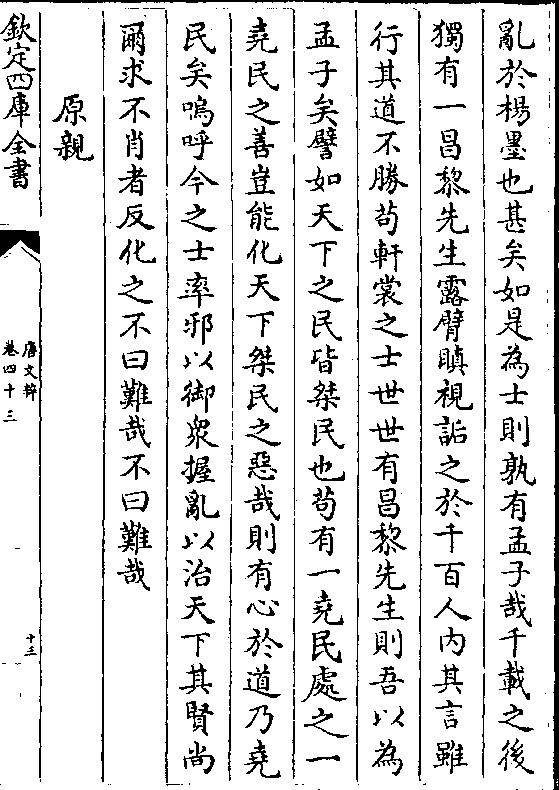 亂於楊墨也甚矣如是為士則孰有孟子哉千載之後
獨有一昌黎先生露臂瞋視詬之於千百人內其言雖
行其道不勝苟軒裳之士世世有昌黎先生則吾以為
孟子矣譬如天下之民皆桀民也苟有一堯民處之一
堯民之善豈能化天下桀民之惡哉則有心於道乃堯
民矣嗚呼今之士率邪以御衆握亂以治天下其賢尚
爾求不肖者反化之不曰難哉不曰難哉
原親
欽定四庫全書
唐文粹
卷四十三
十三